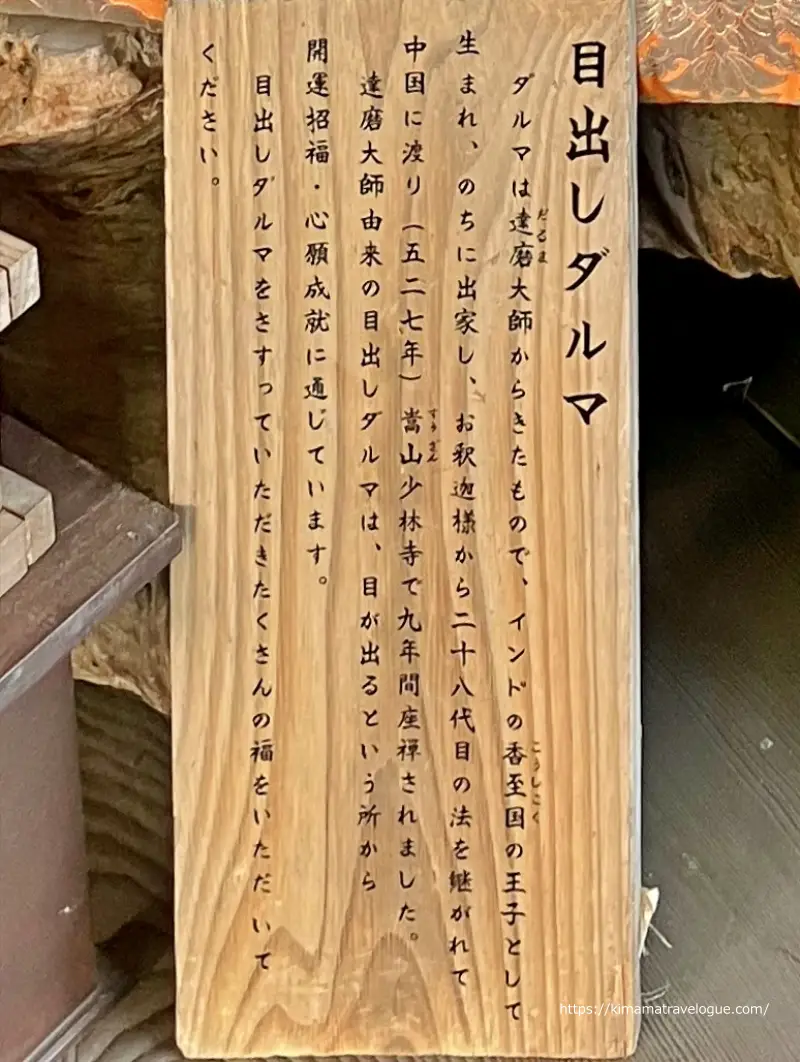 目出しダルマ
ダルマは達磨大師からきたもので、インドの香至国の王子として
生まれ、のちに出家し、お釈迦様から二十八代目の法を継がれて
中国に渡り(五二七年)嵩山少林寺で九年間座禅されました。
達磨大師由来の目出しダルマは、目が出るという所から
開運招福・心願成就に通じています。
目出しダルマをさすっていただきたくさんの福をいただいて
ください。
だるま
こうしこく
すうざん
https://kimamatravelogue.com/